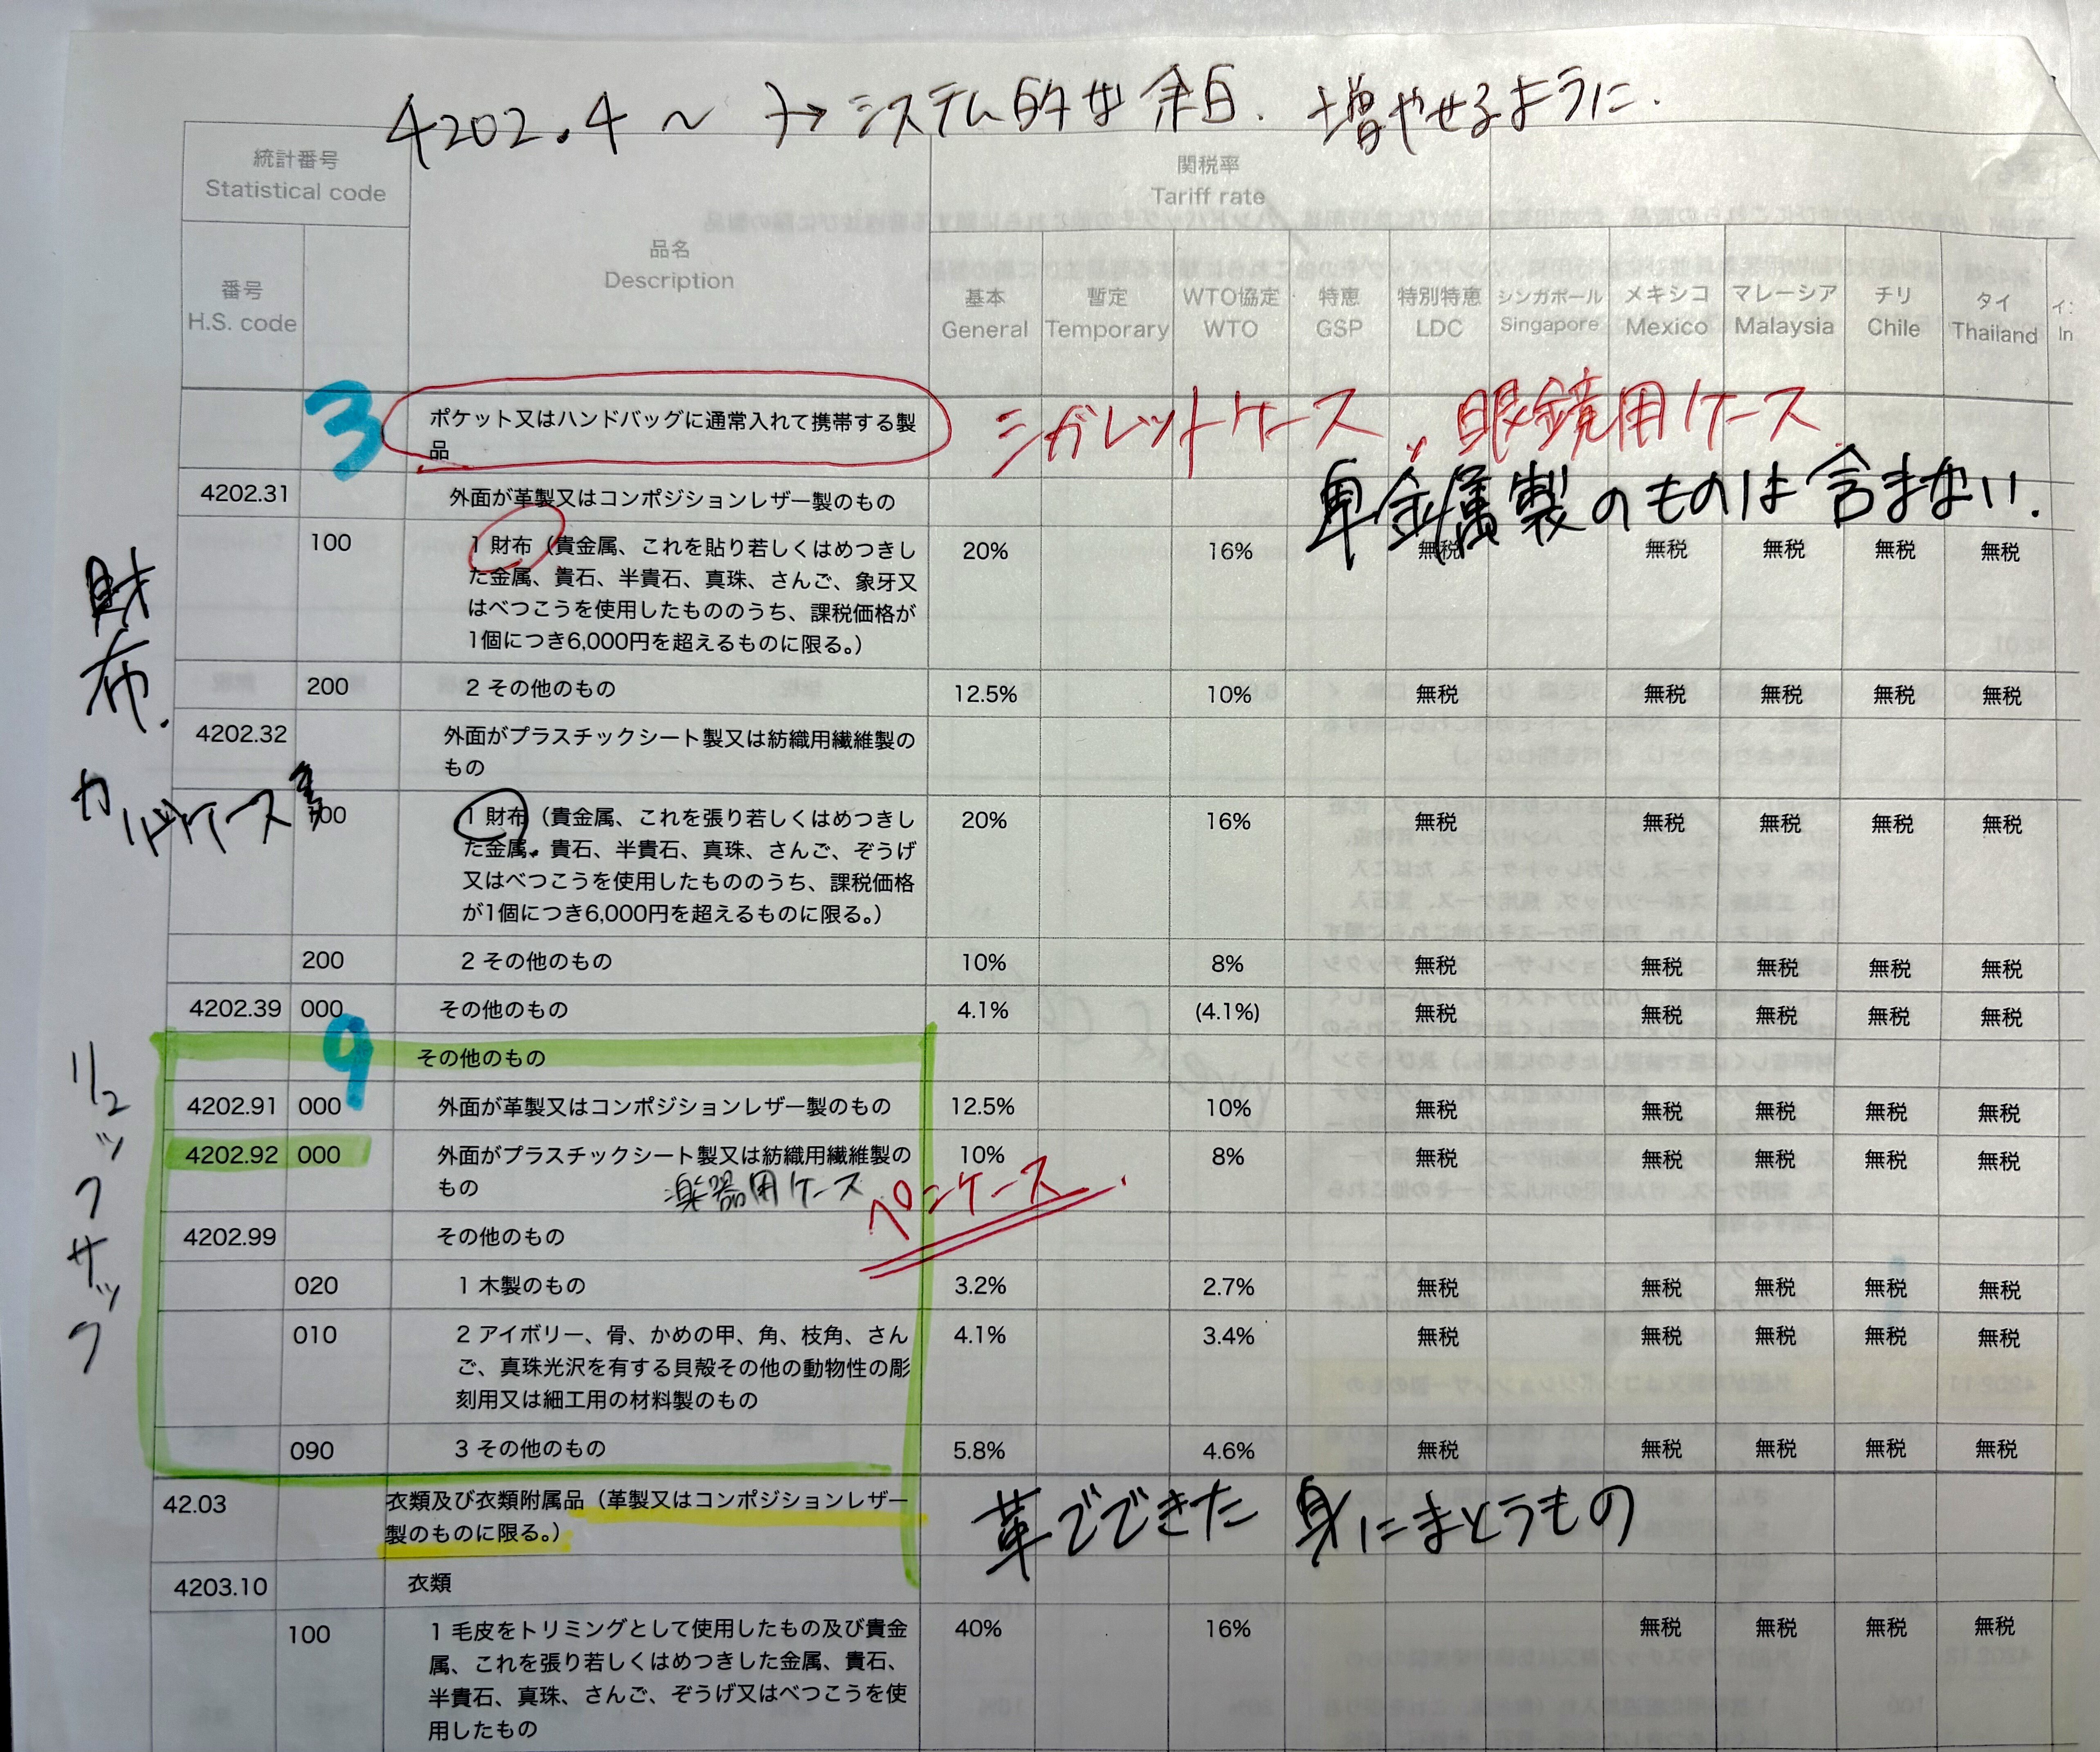 4202.4 ～ → システム的な余白. 増やせるように.
統計番号
Statistical code
関税率
Tariff rate
番号
H.S. code
品名
Description
基本
General
暫定
Temporary
WTO協定
WTO
特恵
GSP
特別特恵
LDC
シンガポール
Singapore
メキシコ
Mexico
マレーシア
Malaysia
チリ
Chile
タイ
Thailand
In
3
ポケット又はハンドバッグに通常入れて携帯する製
品
シガレットケース、眼鏡用ケース
卑金属製のものは含まない.
4202.31 外面が革製又はコンポジションレザー製のもの
100 1 財布（貴金属、これを貼り若しくはめつきし 20% 16% 無税 無税 無税 無税 無税
た金属、貴石、半貴石、真珠、さんご、象牙又
はべつこうを使用したもののうち、課税価格が
1個につき6,000円を超えるものに限る。）
財布.
200 2 その他のもの 12.5% 10% 無税 無税 無税 無税 無税
4202.32 外面がプラスチックシート製又は紡織用繊維製の
もの
カードケース等
100 1 財布（貴金属、これを張り若しくはめつきし 20% 16% 無税 無税 無税 無税 無税
た金属、貴石、半貴石、真珠、さんご、ぞうげ
又はべつこうを使用したもののうち、課税価格
が1個につき6,000円を超えるものに限る。）
200 2 その他のもの 10% 8% 無税 無税 無税 無税 無税
4202.39 000 その他のもの 4.1% (4.1%) 無税 無税 無税 無税 無税
9
その他のもの
リュックサック
4202.91 000 外面が革製又はコンポジションレザー製のもの 12.5% 10% 無税 無税 無税 無税 無税
4202.92 000 外面がプラスチックシート製又は紡織用繊維製の 10% 8% 無税 無税 無税 無税 無税
もの
楽器用ケース
ペンケース.
4202.99 その他のもの
020 1 木製のもの 3.2% 2.7% 無税 無税 無税 無税 無税
010 2 アイボリー、骨、かめの甲、角、枝角、さん 4.1% 3.4% 無税 無税 無税 無税 無税
ご、真珠光沢を有する貝殻その他の動物性の彫
刻用又は細工用の材料製のもの
090 3 その他のもの 5.8% 4.6% 無税 無税 無税 無税 無税
42.03 衣類及び衣類附属品（革製又はコンポジションレザー
製のものに限る。）
革でできた 身にまとうもの
4203.10 衣類
100 1 毛皮をトリミングとして使用したもの及び貴金 40% 16% 無税 無税 無税 無税
属、これを張り若しくはめつきした金属、貴石、
半貴石、真珠、さんご、ぞうげ又はべつこうを使
用したもの